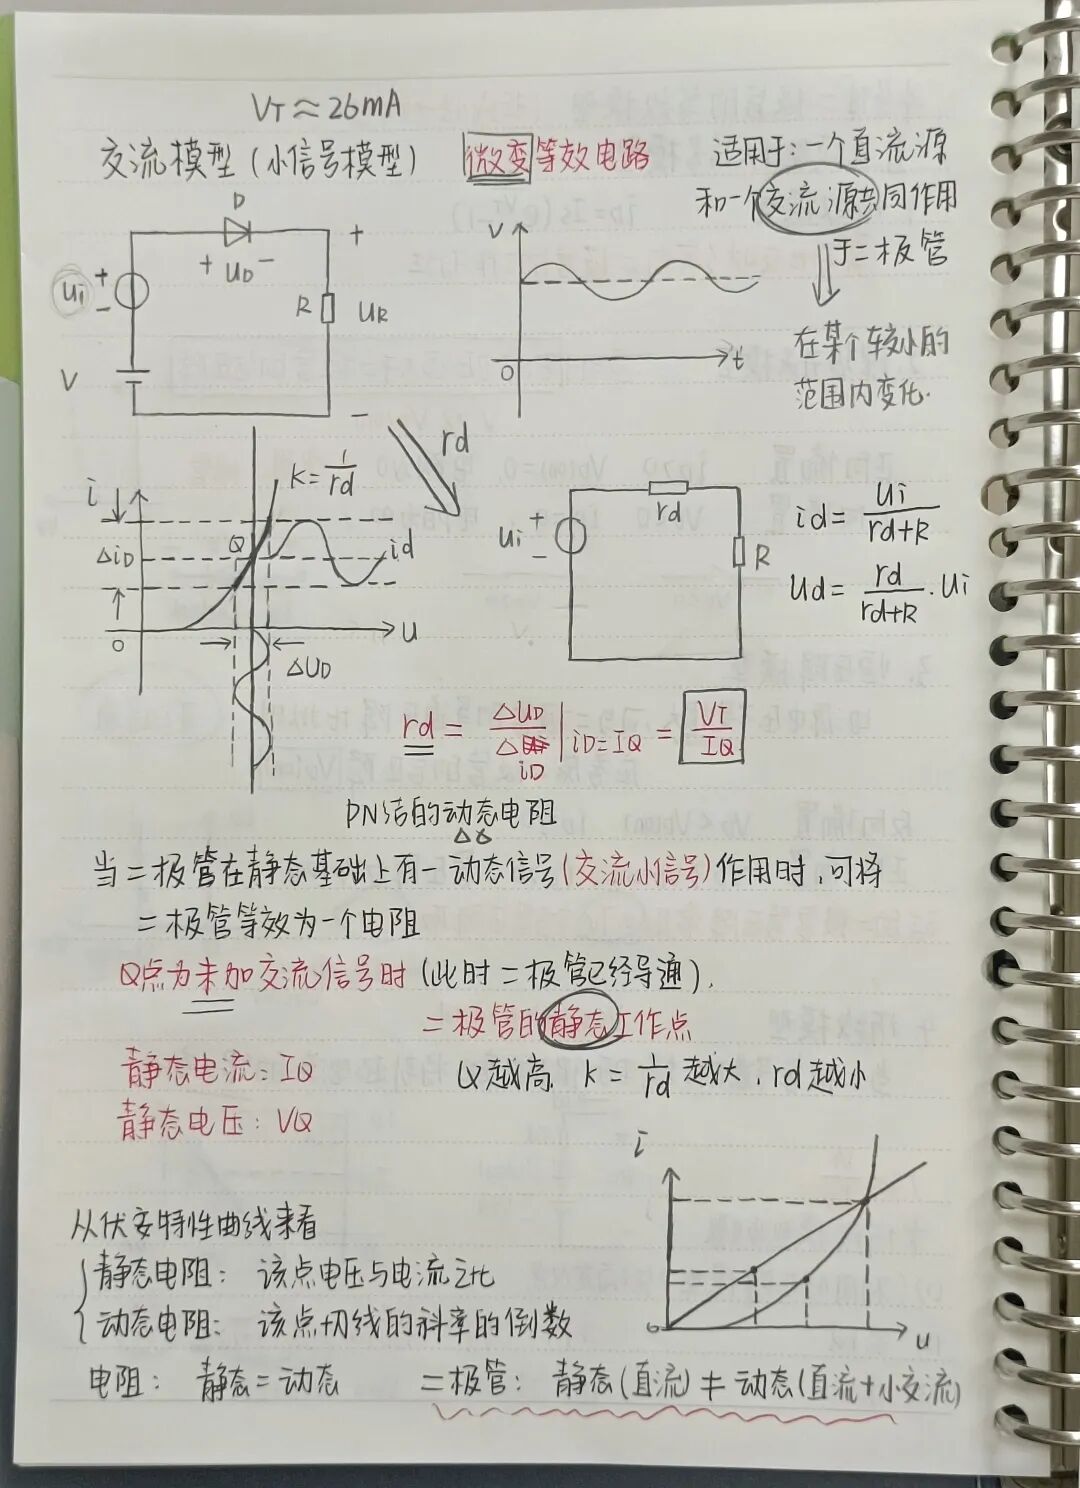 VT≈26mA
交流模型(小信号模型) 微变等效电路
适用于:一个直流源
和一个交流源共同作用
于二极管
在某个较小的
范围内变化.
D
+ UD -
+
Ui
-
V
R
+
UR
-
V
O
t
rd
i
K=1/rd
Q
id
△iD
O
u
△UD
rd
+
Ui
-
R
id=Ui/(rd+R)
Ud=rd/(rd+R)·Ui
rd=△UD/△iD|iD=IQ=VT/IQ
PN结的动态电阻
当二极管在静态基础上有一动态信号(交流小信号)作用时,可将
二极管等效为一个电阻
Q点为未加交流信号时(此时二极管已经导通),
二极管的静态工作点
静态电流:IQ
Q越高, K=1/rd越大,rd越小
静态电压:VQ
i
o
u
从伏安特性曲线来看
静态电阻: 该点电压与电流之比
动态电阻: 该点切线的斜率的倒数
电阻: 静态=动态 二极管: 静态(直流)≠动态(直流+小交流)